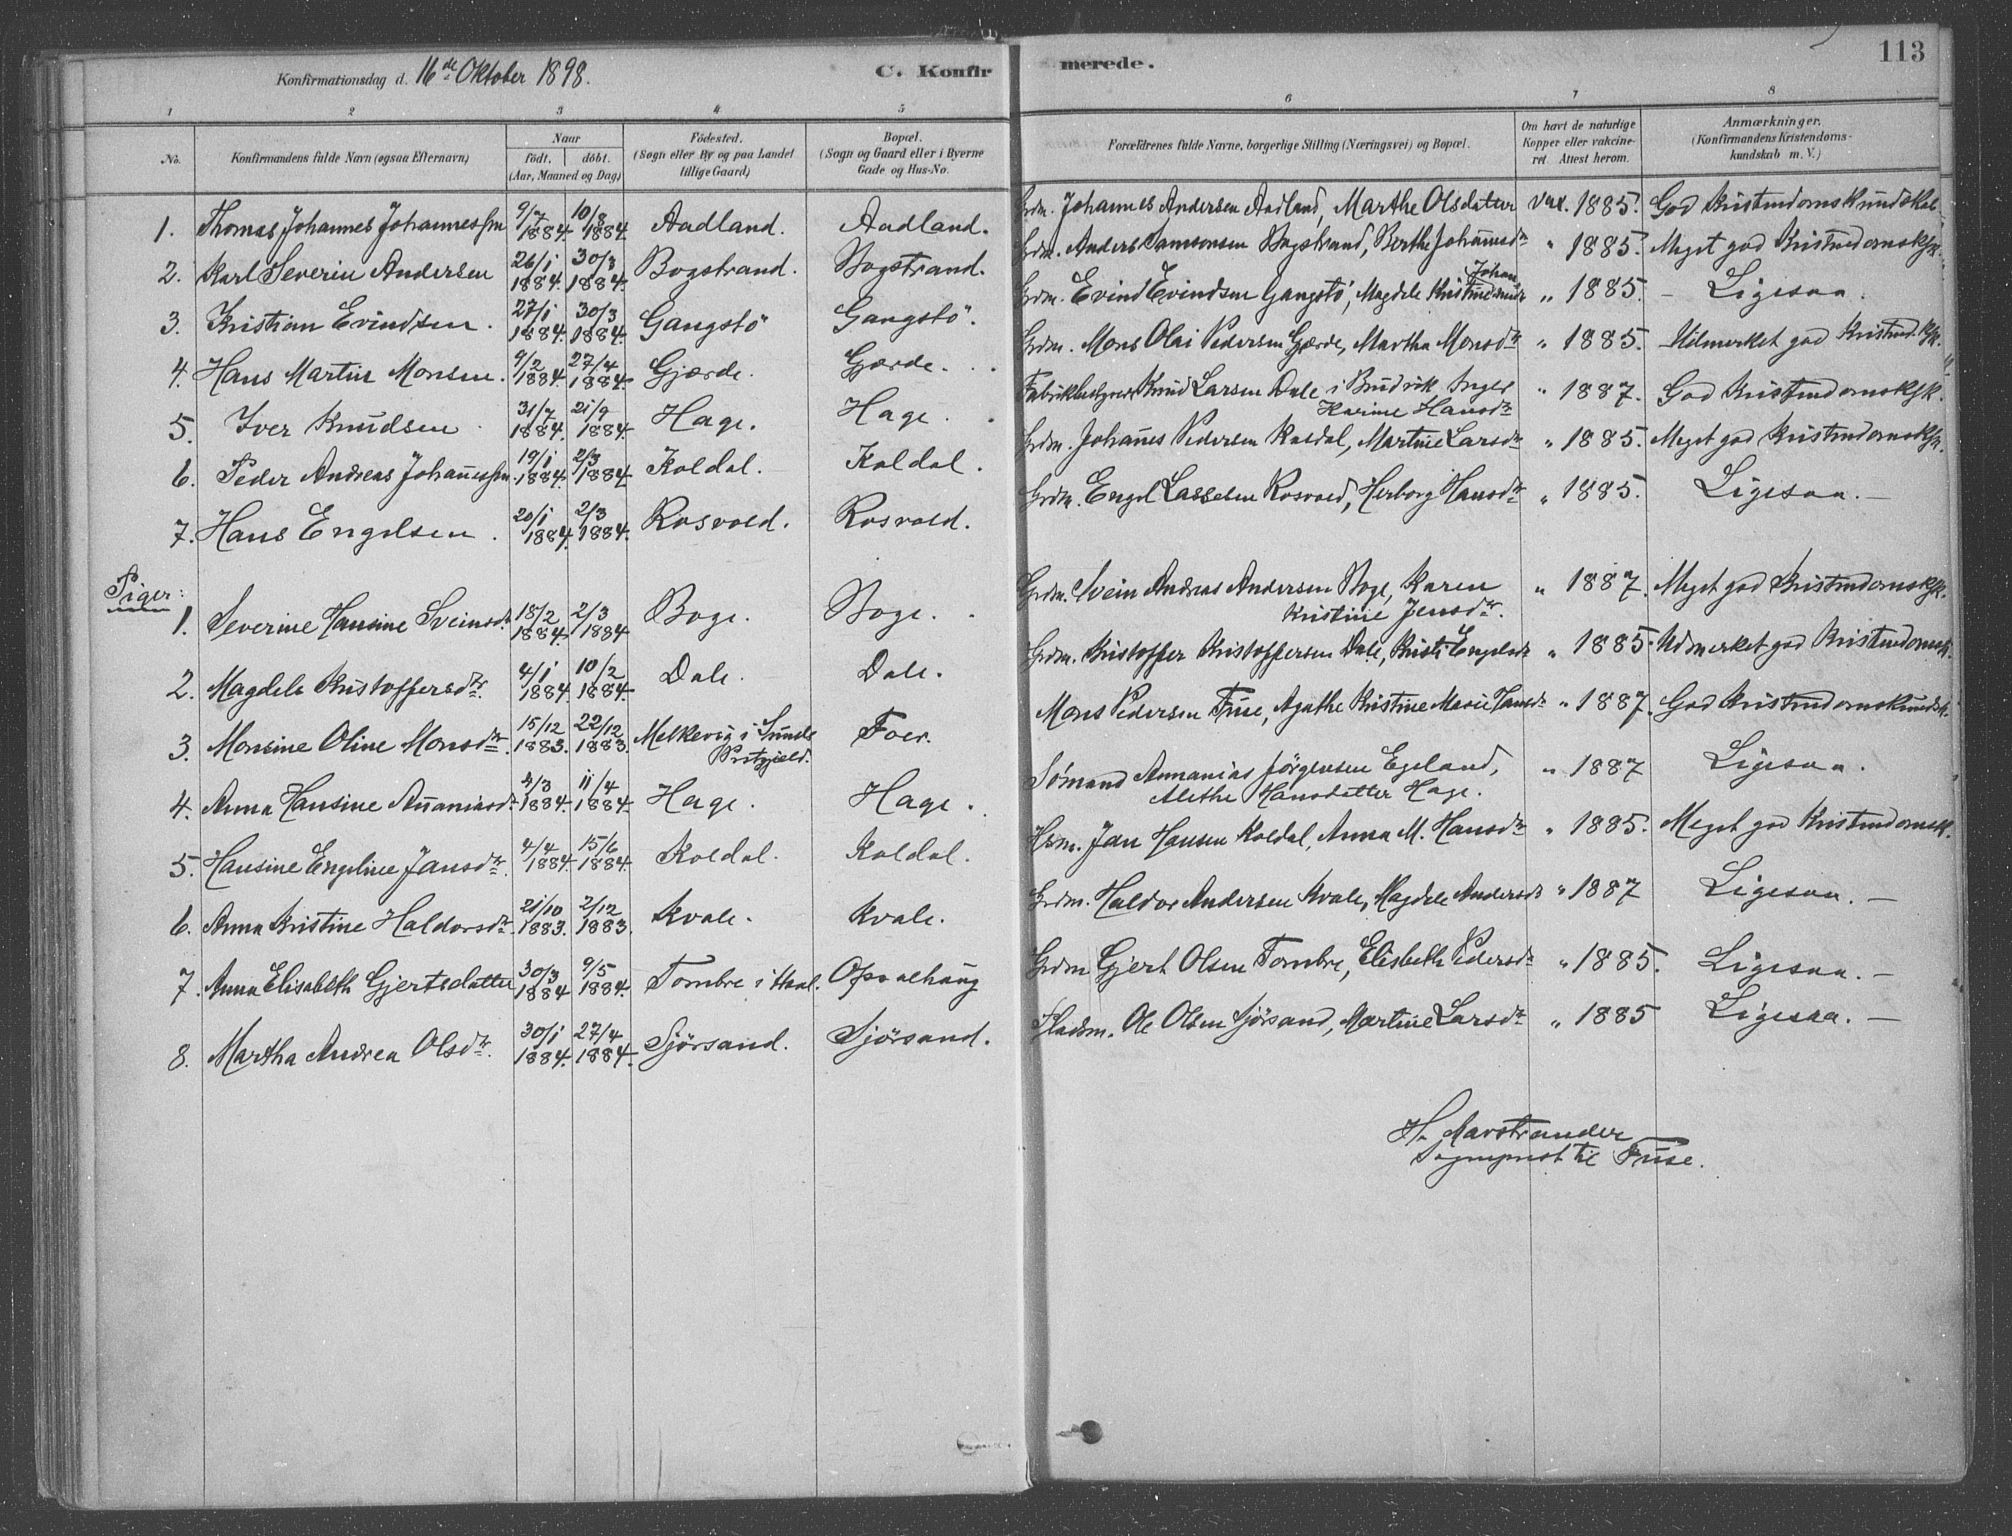 Konfirmationsdag d. 16de Oktober 1898.
C. Konfirmerede.
113
1 2 3 4 5 6 7 8
No.
Konfirmandens fulde Navn (ogsaa Efternavn)
Naar
födt, döbt.
(Aar, Maaned og Dag)
Födested.
(Sogn eller By og paa Landet
tillige Gaard)
Bopæl.
(Sogn og Gaard eller i Byerne
Gade og Hus-No.
Forældrenes fulde Navne, borgerlige Stilling (Næringsvei) og Bopæl.
Om havt de naturlige
Kopper eller vakcine-
ret. Attest herom.
Anmærkninger.
(Konfirmandens Kristendoms-
kundskab m. V.)
1. Thomas Johannes Johannessen 9/7 1884. 10/8 1884 Aadland. Aadland. Grdm. Johannes Andersen Aadland, Marthe Olsdatter Vax. 1885. God Kristendomskundskab
2. Karl Severin Andersen 26/1 1884. 30/3 1884. Bogstrand. Bogstrand. Grdm. Anders Samsonsen Bogstrand, Berthe Johannesdr " 1885. Meget god Kristendomsksk.
3. Kristian Evindsen. 27/1 1884. 30/3 1884. Gangstö Gangstö. Grdm. Evind Evindsen Gangstö, Magdele Kristine Johansdr " 1885. - Ligesaa.
4. Hans Martin Monsen. 9/2 1884. 27/4 1884. Gjærde. Gjerde. Grdm. Mons Olai Pedersen Gjerde, Martha Monsdr " 1885. Udmerket god Kristend.ksk.
5. Iver Knudsen 31/7 1884. 21/9 1884. Hage. Hage. Knud Larsen Dale i Brudvik Inger
Karine Hansdr " 1887. God Kristendomsksk.
6. Peder Andreas Johanessen. 19/1 1884. 2/3 1884 Koldal. Koldal. Grdm. Johanes Pedersen Koldal, Martine Larsdr " 1885. Meget god Kristendomsksk.
7. Hans Engelsen. 20/1 1884. 2/3 1884. Rosvold. Rosvold. Grdm. Engel Lassesen Rosvold, Herborg Hansdr " 1885. Ligesaa. -
Piger:
1. Severine Hansine Sveinsdr. 18/2 1884. 2/3 1884 Boge. Boge. Grdm. Svein Andreas Andersen Boge, Karen
Kristine Jensdr. " 1887. Meget god Kristendomsksk.
2. Magdele Kristoffersdr. 4/1 1884 10/2 1884. Dale. Dale. Grdm. Kristoffer Kristoffersen Dale, Kristi Engelsdr " 1885. Udmerket god Kristendomsk.
3. Monsine Oline Monsdr. 15/12 1883. 22/12 1883. Melkevig i Sunds
Pstgjeld. Foer. Mons Pedersen Fuse, Agathe Kristine Marie Hansdr " 1887. God Kristendomskundsk.
4. Anna Hansine Ananiasdr 4/3 1884. 11/4 1884. Hage. Hage. Sömand Annanias Jörgensen Egeland,
Alethe Hansdatter Hage. " 1887 Ligesaa.
5. Hansine Engeline Jansdr. 4/4 1884. 15/6 1884. Koldal. Koldal. Hsm. Jan Hansen Koldal, Anna M. Hansdr " 1885. Meget god Kristendomsk.
6. Anna Kristine Haldorsdr. 21/10 1883. 2/12 1883. Kvale. Kvale. Grdm. Haldor Andersen Kvale, Magdele Andersdr " 1887 Ligesaa. -
7. Anna Elisabeth Gjertsdatter 30/3 1884 9/5 1884. Tombre i Haal. Opsalhaug Grdm Gjert Olsen Tombre, Elisbeth Pedersdr " 1885. Ligesaa. -
8. Martha Andrea Olsdr. 30/1 1884. 27/4 1884. Sjörsand. Sjörsand. Pladsm. Ole Olsen Sjörsand, Martine Larsdr " 1885 Ligesaa. -
H. Marstrander
Sogneprest til Fuse.